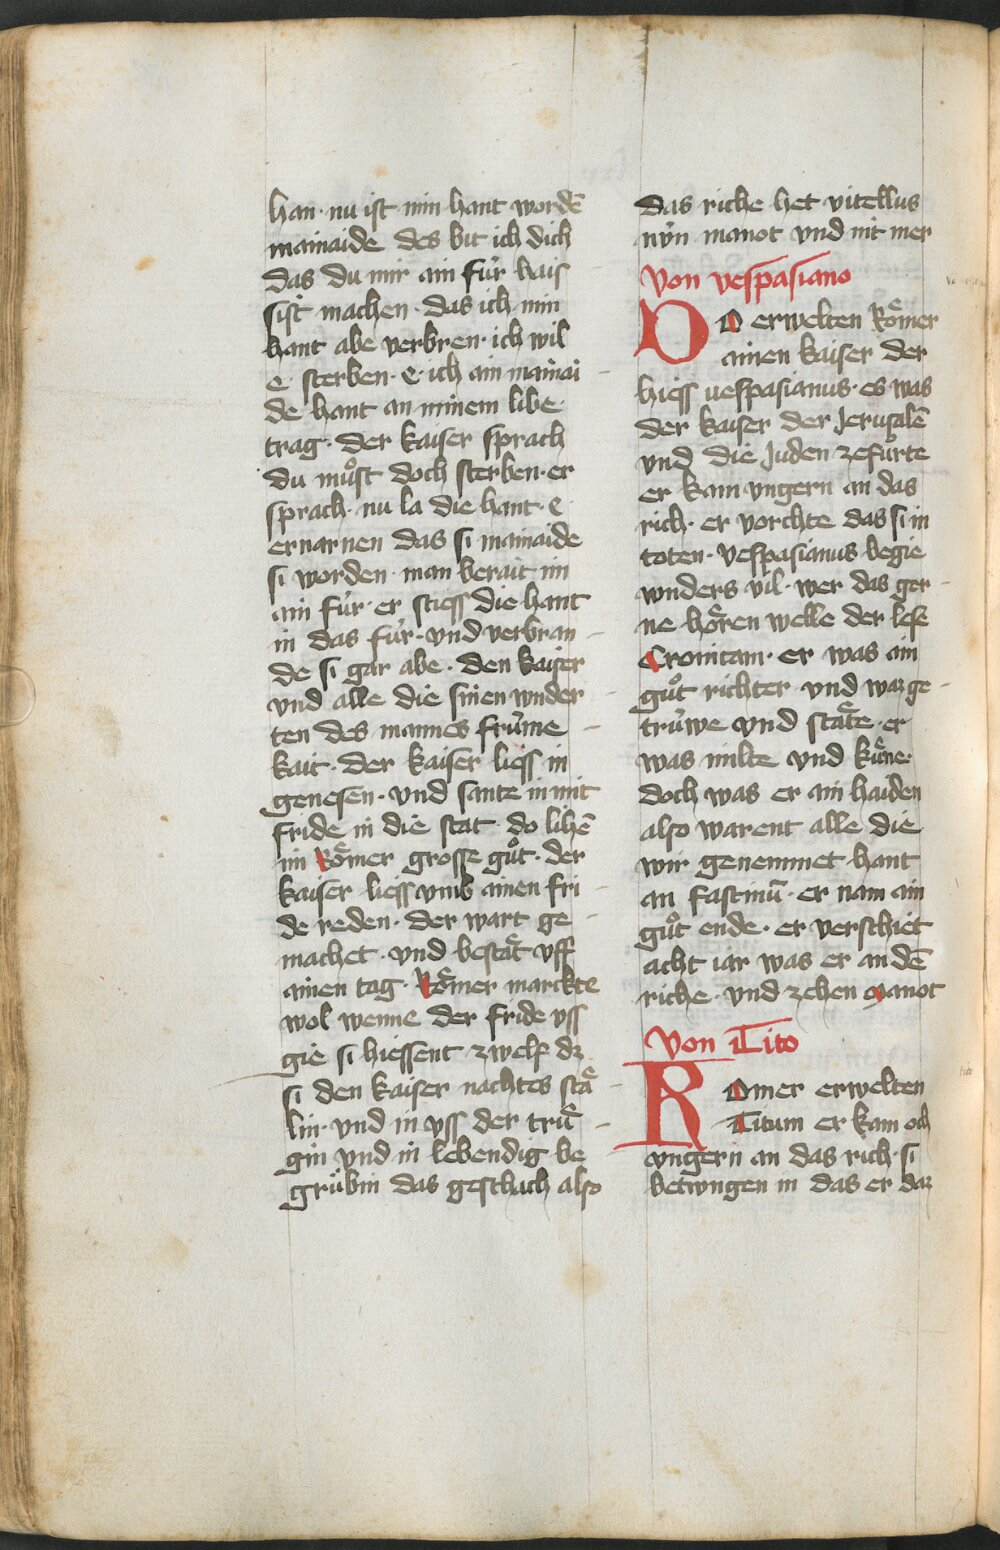 han · nu ist min hant wordē
mainaide des bit ich dich
das du mir ain fúr hais
sist machen · das ich min
hant abe verbren · ich wil
e sterben · e · ich ain mainai
de hant an minem libe
trag · der kaiser sprach
du muͦst doch sterben · er
sprach · nu la die hant · e
ernarnen das si mainaide
si worden · man berait im
ain fúr · er stiess die hant
in das fúr · vnd verbran
de si gar abe · den kaiser
vnd alle die sinen wnder
ten des mannes frúme
kait · der kaiser liess in
genesen · vnd sante in mit
fride in die stat do lihē
im Roͤmer grosse guͦt · der
kaiser liess vmb ainen fri
de reden · der wart ge
machet · vnd bestaͤt vff
ainen tag · Roͤmer marckte
wol wenne der fride vss
gie si hiessent zwelf dz
si den kaiser nachtes staͤ
lin · vnd in vss der trú
gin vnd in lebendig be
grúbin das geschach also
das riche het vitellus
nv́n manot vnd nit mer
Von vespasiano
DO erwelten Roͤmer
ainen kaiser der
hiess uespasianus · es was
der kaiser der Jerusalē
vnd die Juden zefuͦrte
er kam vngern an das
rich · er vorchte das si in
toten · Vespasianus begie
wnders vil · wer das ger
ne hoͤren welle der lese
Cronicam · er was ain
guͦt richter vnd waz ge
trúwe vnd staͤte · er
was milte vnd kuͤne ·
doch was er ain haiden
also warent alle die
wir genemmet hant
an fastinū · er nam ain
guͦt ende · er verschiet
acht iar was er an dē
riche · vnd zehen manot
Von Tito
ROmer erwelten
Titum er kam och
vngern an das rich · si
betwngen in das er daz